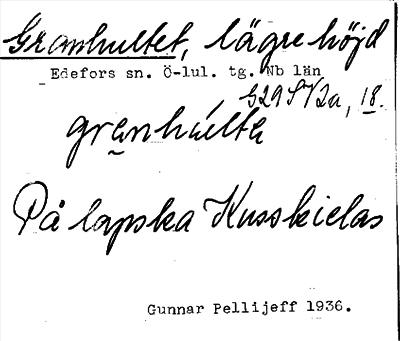 Granhultet, lägre höjd
Edefors sn. Ö-lul. tg. Nb län
G29 SV2a, 18.
granhulta
På lapska Kusskielas
Gunnar Pellijeff 1936.